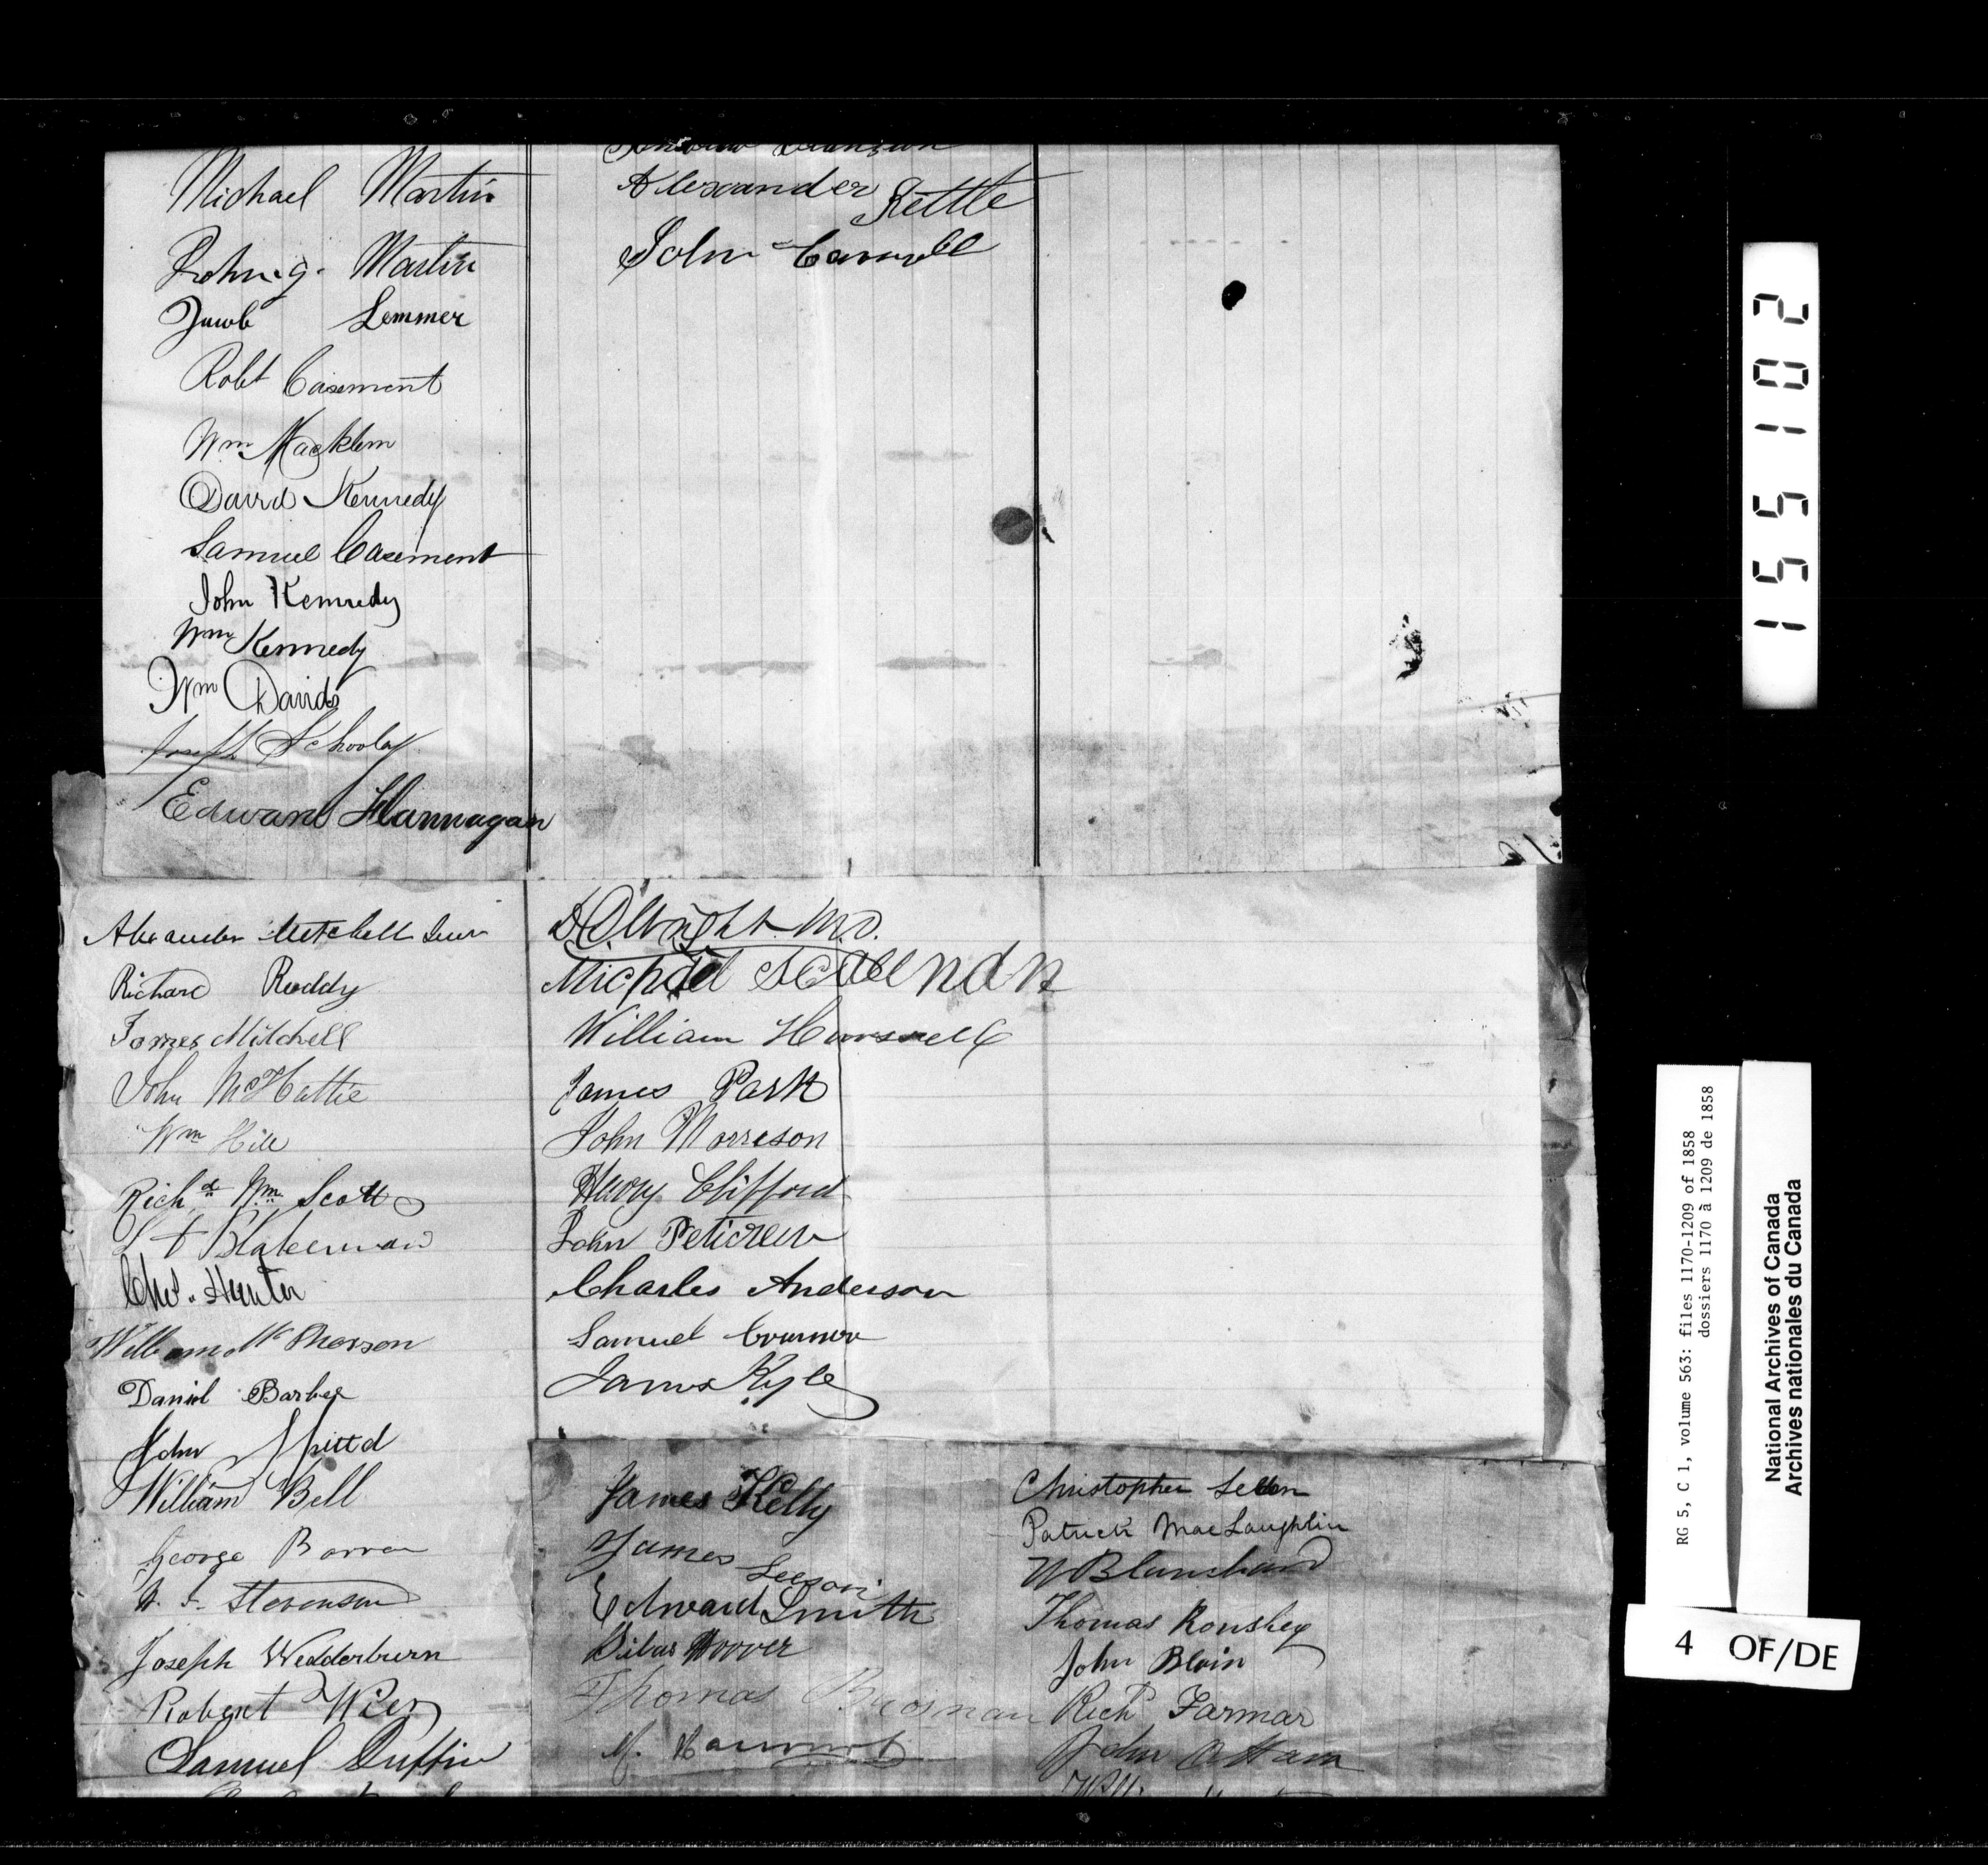 Michael Martin
John G. Martin
Jacob Lemmer
Robt Casement
Wm Macklem
David Kennedy
Samuel Casement
John Kennedy
Wm Kennedy
Wm Davids
Joseph Schooley
Edward Hannagan
Alexander Kettle
John
Alexander Mitchell
Richard Ruddy
James Mitchell
John McHattie
Wm Hill
Richd Wm Scott
Blakeman
Chs. Hunter
William McPherson
Daniel Barber
John
William Bell
George Barron
Stevenson
Joseph Wedderburn
Robert Wier
Samuel Duffin
M.D.
Michael
William
James Park
John Morreson
Henry Clifford
John Peticrew
Charles Anderson
Samuel
James Kyle
James Kelly
James Leeson
Edward Smith
Hoover
Thomas Brosnan
M.
Christopher
Patrick MacLaughlin
W Blanchard
Thomas Ronshey
John Blain
Richd Farmar
John
155102
RG 5, C 1, volume 563: files 1170-1209 of 1858
dossiers 1170 à 1209 de 1858
National Archives of Canada
Archives nationales du Canada
4 OF/DE